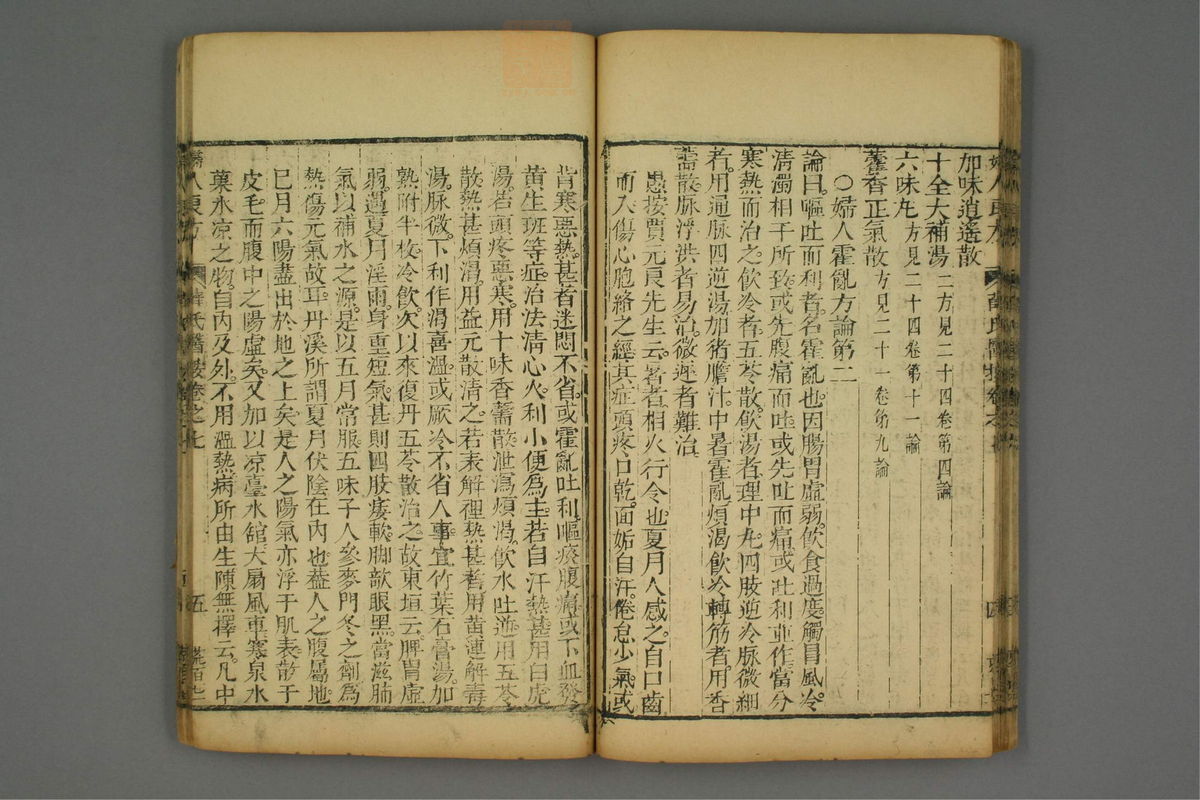 加味逍遙散
十全大補湯二方見二十四卷第四論
六味丸方見二十四卷第十一論
藿香正氣散方見二十一卷第九論
○婦人霍亂方論第二
論曰嘔吐而利者名霍亂也因腸胃虛弱飲食過度觸冒風冷
淸濁相干所致或先腹痛而吐或先吐而痛或吐利並作當分
寒熱而治之飲冷者五苓散飲湯者理中丸四肢逆冷脉微細
者用通脉四逆湯加猪膽汁中暑霍亂煩渴飲冷轉筋者用香
薷散脉浮洪者易治微遲者難治
愚按賈元良先生云暑者相火行令也夏月人感之自口齒
而入傷心胞絡之經其症頭疼口乾面垢自汗倦怠少氣或
背寒惡熱甚者迷悶不省或霍亂吐利嘔痰腹痛或下血發
黄生斑等症治法淸心火利小便爲主若自汗熱甚用白虎
湯若頭疼惡寒用十味香薷散泄瀉煩渴飲水吐逆用五苓
散熱甚煩渴用益元散淸之若表解裡熱甚者用黄連解毒
湯脉微下利作渴喜溫或厥冷不省人事宜竹葉石膏湯加
熟附半枚冷飲次以來復丹五苓散治之故東垣云脾胃虛
弱遇夏月淫雨身重短氣甚則四肢痿軟脚欹眼黑當滋肺
氣以補水之源是以五月常服五味子人參麥門冬之劑爲
熱傷元氣故耳丹溪所謂夏月伏陰在內也葢人之腹屬地
巳月六陽盡出於地之上矣是人之陽氣亦浮于肌表散于
皮毛而腹中之陽虛矣又加以凉臺水舘大扇風車寒泉水
菓氷凉之物自內及外不用溫熱病所由生陳無擇云凡中
薛氏醫按卷之七
五